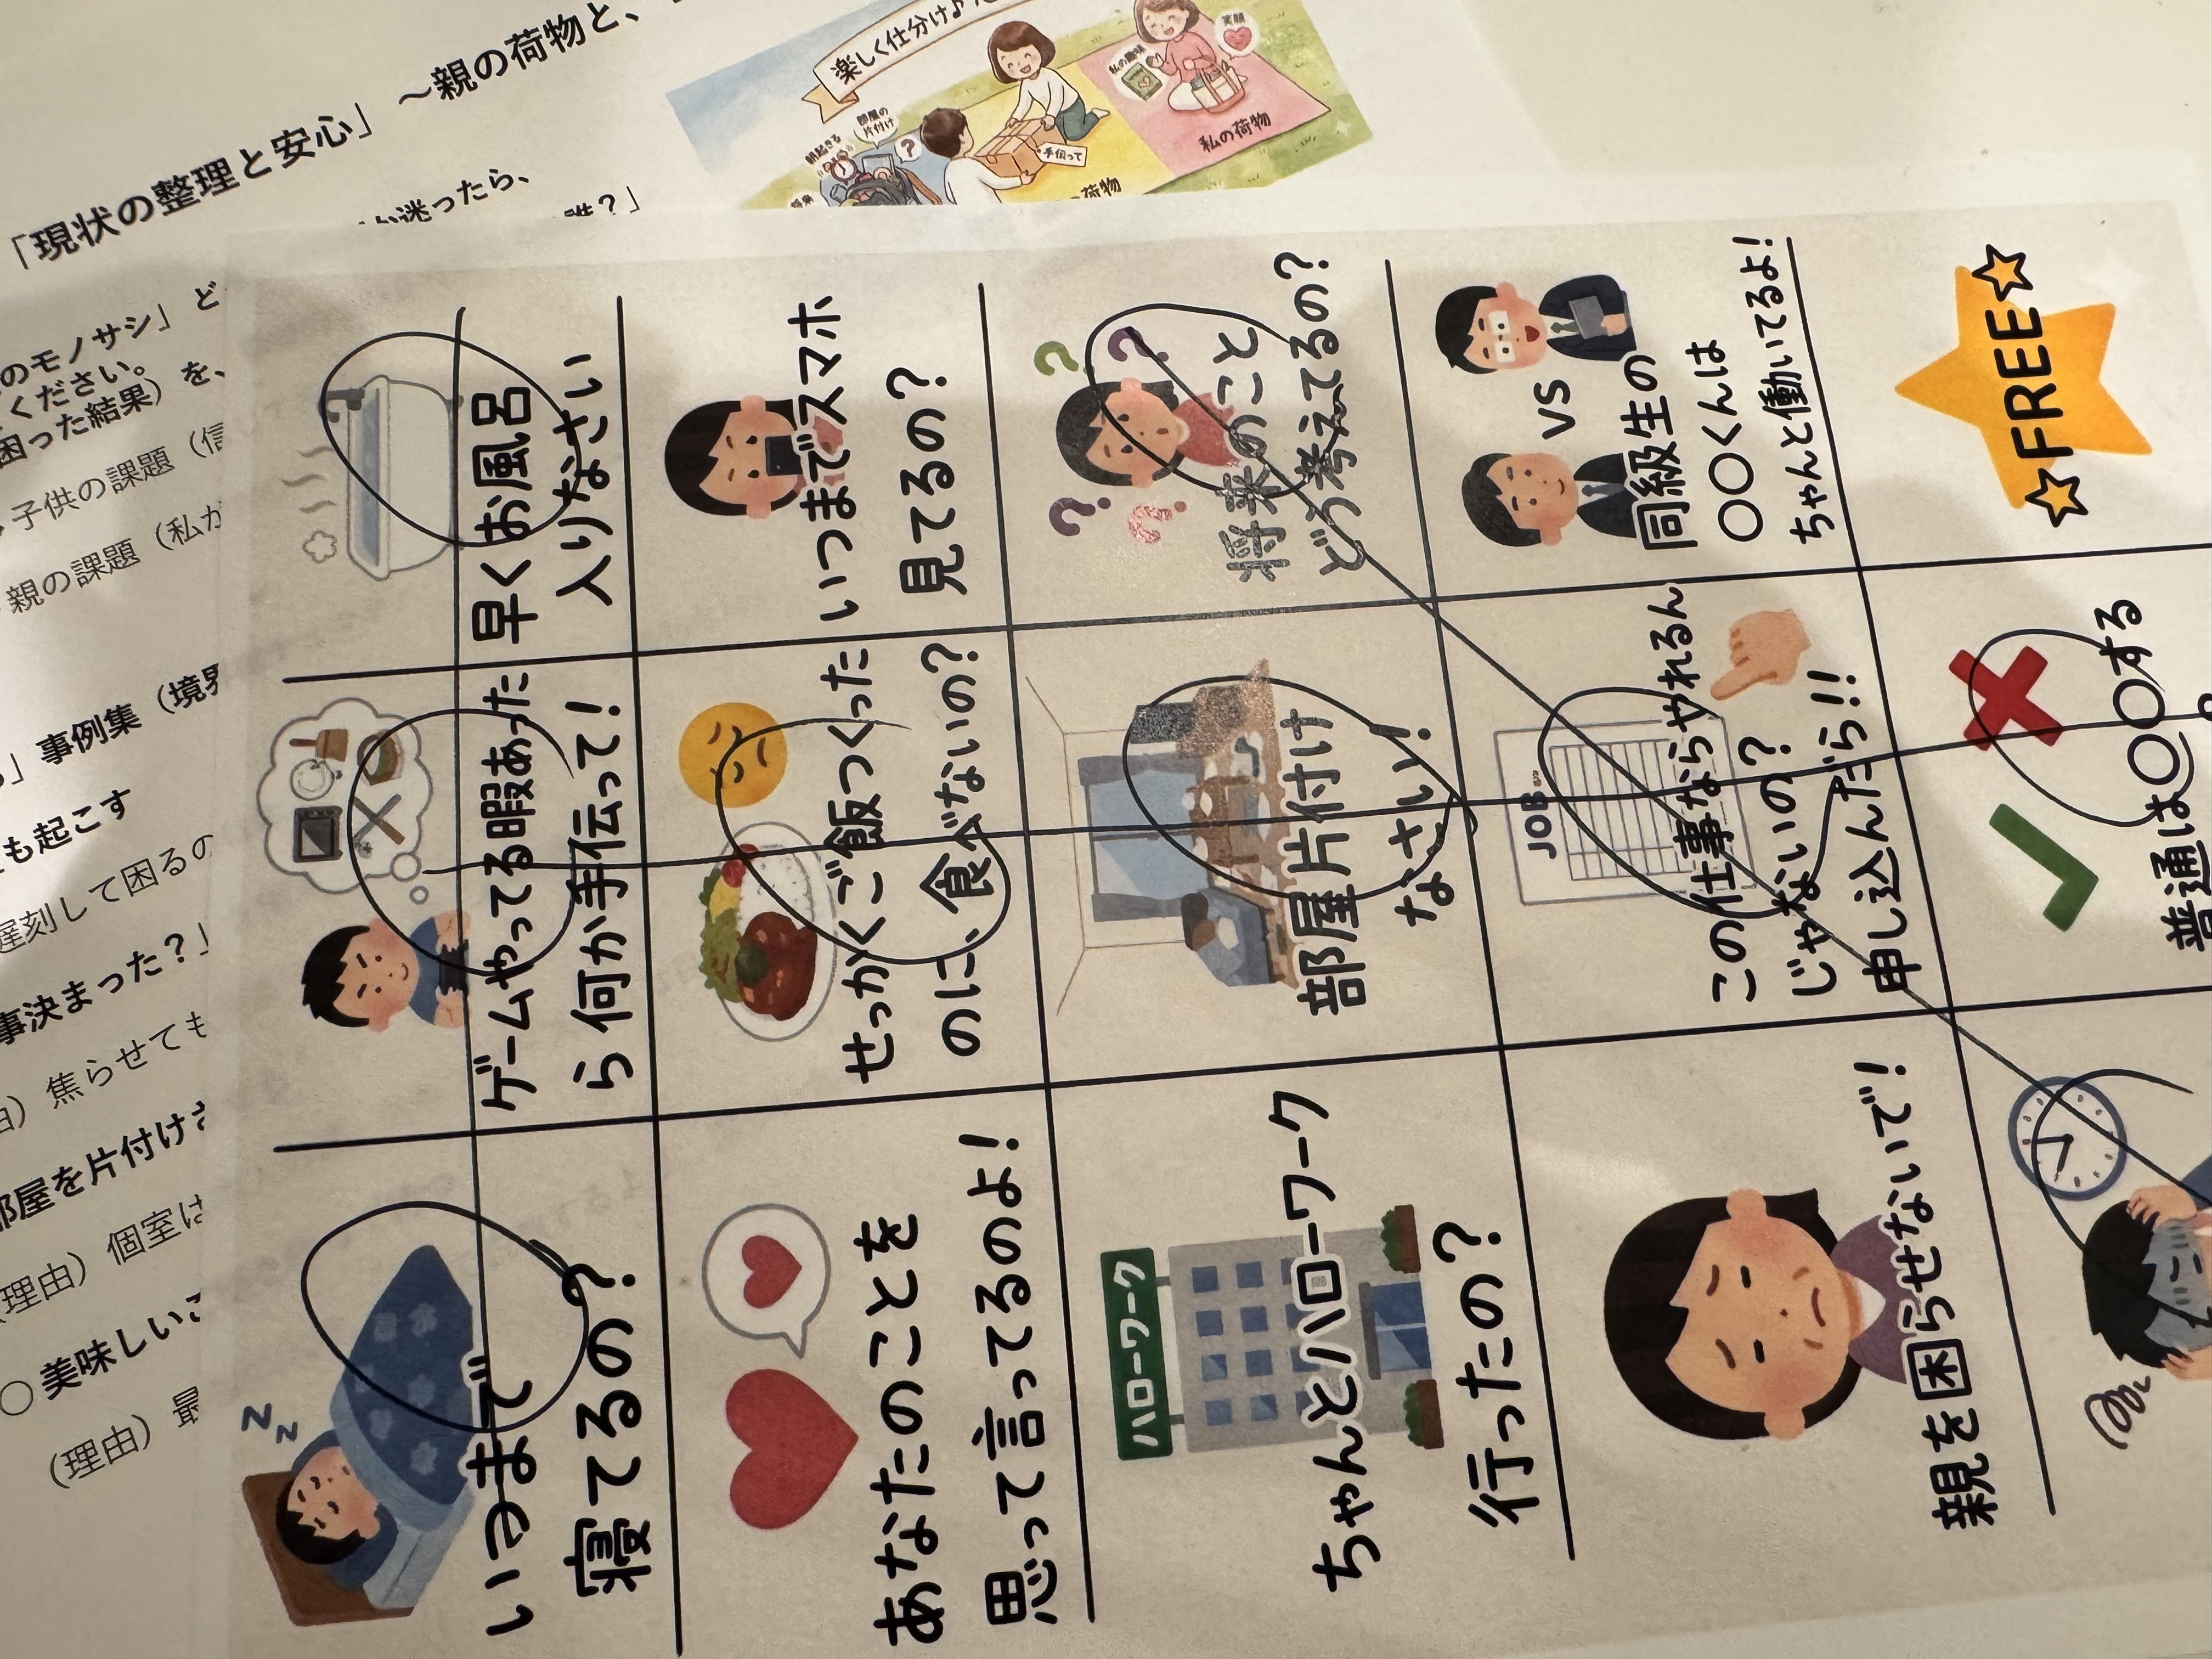 「現状の整理と安心」 ～親の荷物と、
楽しく仕分け♪
朝起きる
部屋の
片付け
?
手伝って
荷物
私の趣味
笑顔
私の荷物
迷ったら、
誰？」
のモノサシ」 ど
ください。
困った結果） を、
子供の課題（信
親の課題（私が
」 事例集（境界
も起こす
遅刻して困るの
事決まった？」
焦らせても
部屋を片付けさ
（理由）個室は
○ 美味しいご
（理由）最
早くお風呂
入りなさい
ゲームやってる暇あった
ら何か手伝って!
zz
いつまで
寝てるの?
いつまでスマホ
見てるの?
せっかくご飯つくった
のに、食べないの?
あなたのことを
思って言ってるのよ!
? ? ? ?
将来のこと
どう考えてるの?
部屋片付け
なさい!
ハローワーク
ちゃんとハローワーク
行ったの?
VS
同級生の
○○くんは
ちゃんと働いてるよ!
JOB
この仕事ならやれるん
じゃないの?
申し込んだら!!
親を困らせないで!
☆FREE☆
普通は○○する